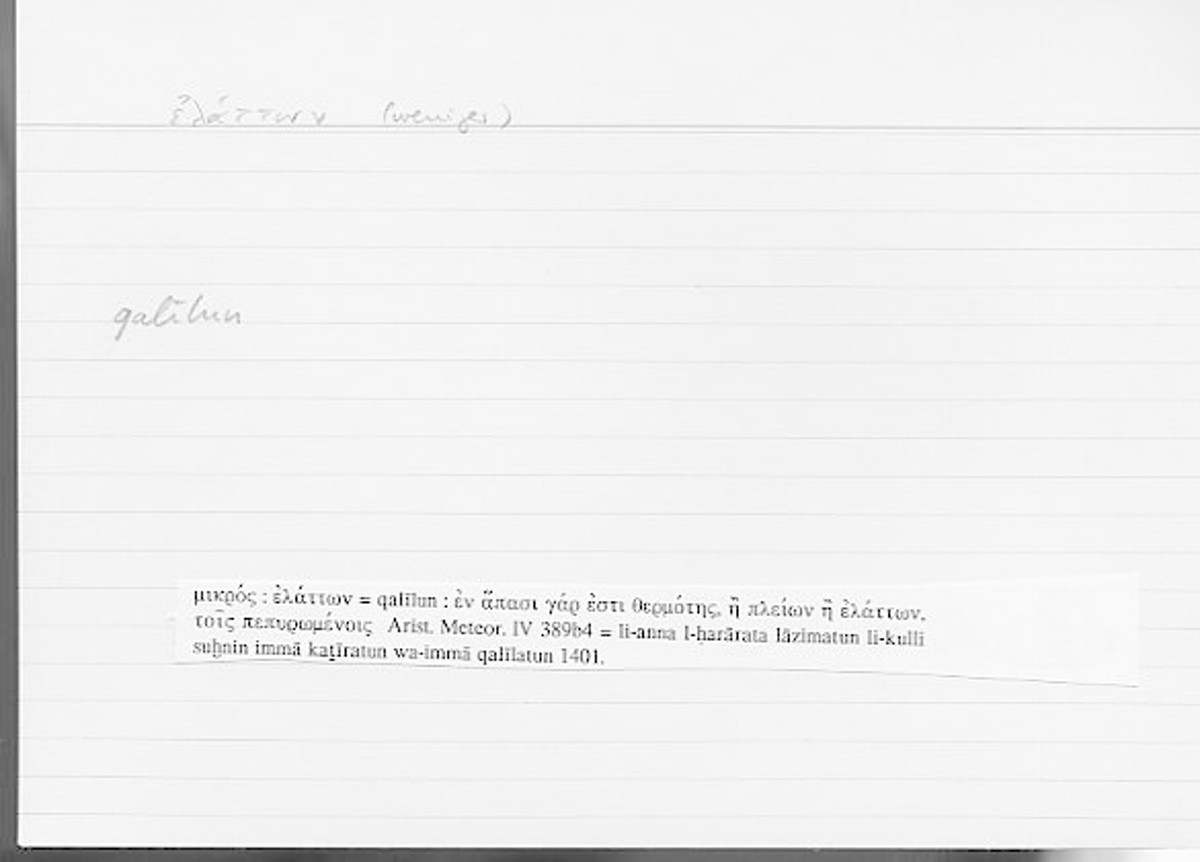 ἐλάττων (weniger)
qalīlun
μικρός : ἐλάττων = qalīlun : ἐν ἅπασι γάρ ἐστι θερμότης, ἢ πλείων ἢ ἐλάττων,
τοῖς πεπυρωμένοις Arist. Meteor. IV 389b4 = li-anna l-ḥarārata lāzimatun li-kulli
suḫnin immā kaṯīratun wa-immā qalīlatun 1401.